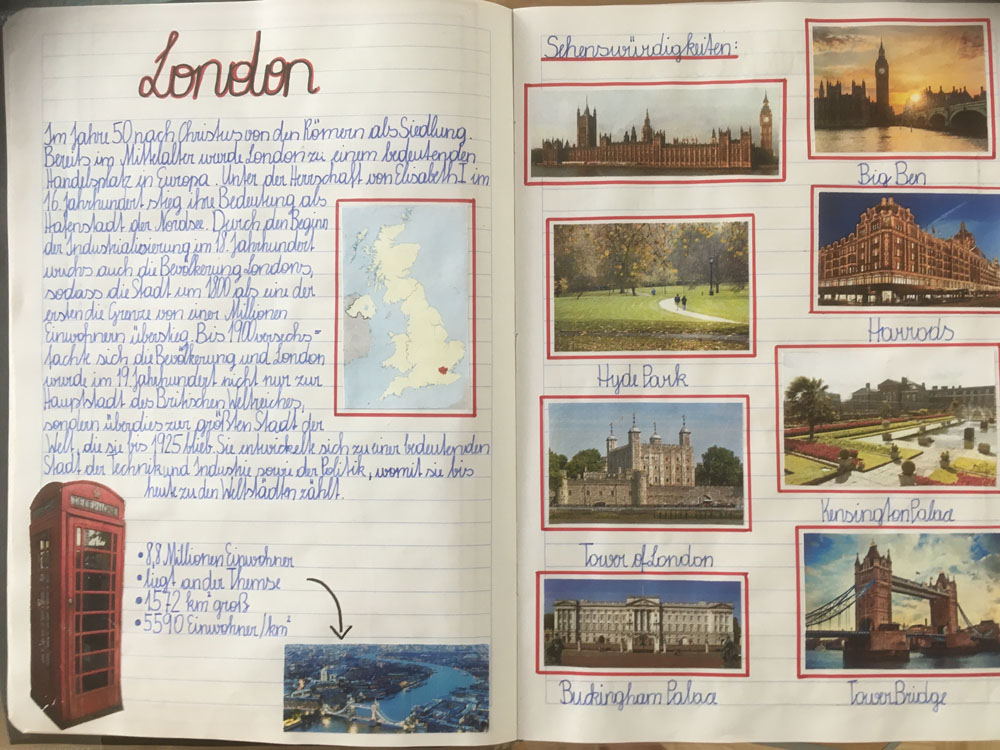 London
Im Jahre 50 nach Christus von den Römern als Siedlung.
Bereits im Mittelalter wurde London zu einem bedeutenden
Handelsplatz in Europa. Unter der Herrschaft von Elisabeth I im
16. Jahrhundert stieg ihre Bedeutung als
Hafenstadt der Nordsee. Durch den Beginn
der Industrialisierung im 18. Jahrhundert
wuchs auch die Bevölkerung Londons,
sodass die Stadt um 1800 als eine der
ersten die Grenze von einer Millionen
Einwohnern überstieg. Bis 1900 versechs=
fachte sich die Bevölkerung und London
wurde im 19. Jahrhundert nicht nur zur
Hauptstadt des Britischen Weltreiches,
sondern überdies zur größten Stadt der
Welt, die sie bis 1925 blieb. Sie entwickelte sich zu einer bedeutenden
Stadt der Technik und Industrie sowie der Politik, womit sie bis
heute zu den Weltstädten zählt.
TELEPHONE
• 8,8 Millionen Einwohner
• liegt an der Themse
• 1572 km² groß
• 5590 Einwohner/km²
Sehenswürdigkeiten:
Big Ben
Harrods
Hyde Park
Kensington Palace
Tower of London
Buckingham Palace
Tower Bridge